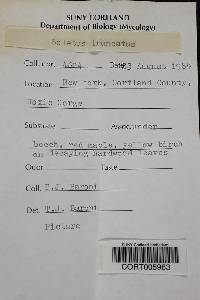 SUNY CORTLAND
Department of Biology (Mycology)
Boletus truncatus
Coll. nr. 4024 Date 23 August 1984
Location New York, Cortland County,
Hoxie Gorge
Substrate Assoc. under
beech, red maple, yellow birch
on decaying hardwood leaves
Odor Taste
Coll. T.J. Baroni
Det. T.J. Baroni
Picture
SUNY Cortland Herbarium
CORT005963